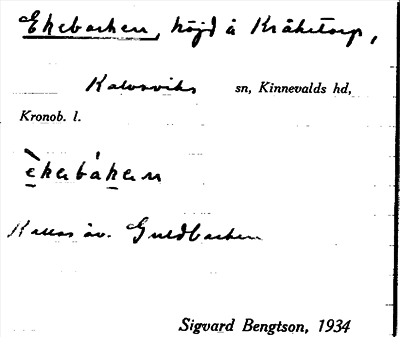 Ekebacken, höjd å Kråketorp,
Kalvsviks sn, Kinnevalds hd,
Kronob. l.
èkabákan
Kallas äv. Guldbacken
Sigvard Bengtson, 1934